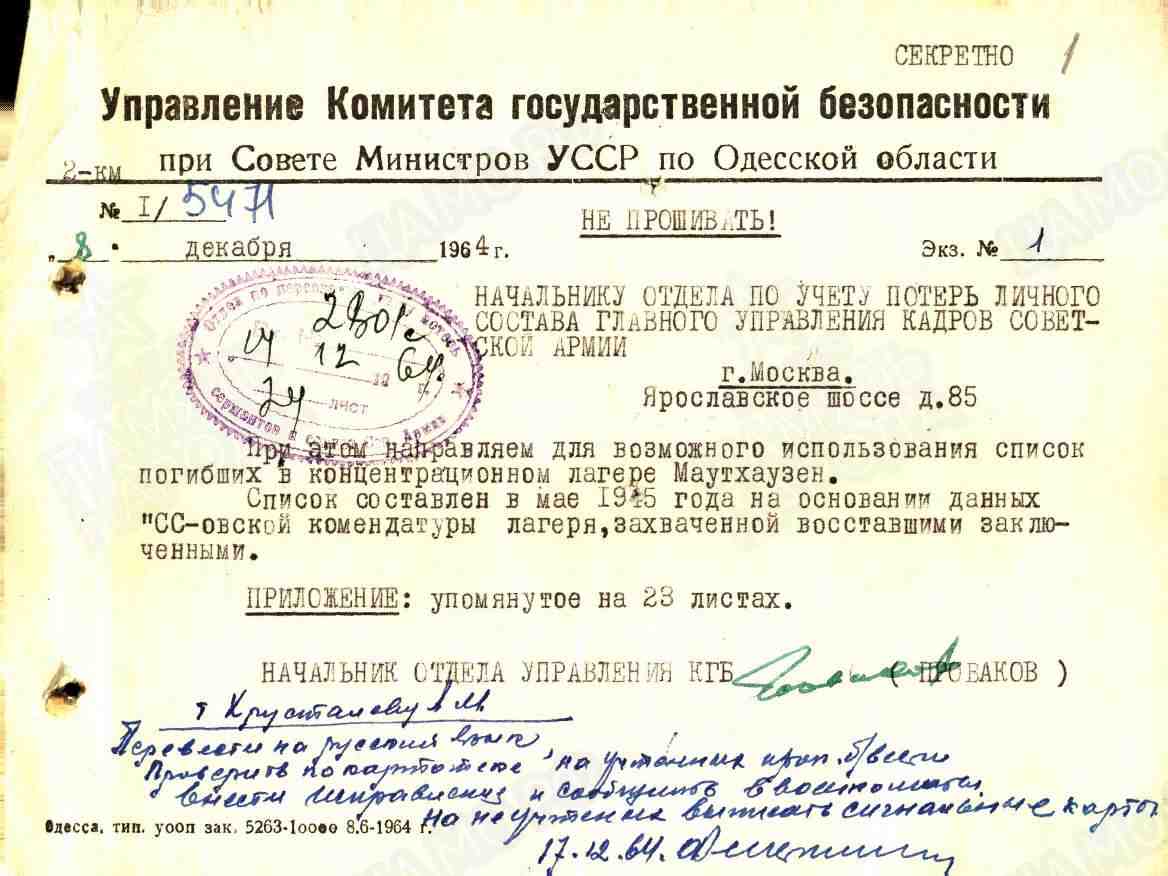 СЕКРЕТНО 1
Управление Комитета государственной безопасности
при Совете Министров УССР по Одесской области
2-км
№ I/ 5471
НЕ ПРОШИВАТЬ!
„8" декабря 1964 г.
Экз. № 1
НАЧАЛЬНИКУ ОТДЕЛА ПО УЧЕТУ ПОТЕРЬ ЛИЧНОГО
СОСТАВА ГЛАВНОГО УПРАВЛЕНИЯ КАДРОВ СОВЕТ-
СКОЙ АРМИИ
г.Москва.
Ярославское шоссе д.85
Отдел по персон. потерь
2801с
17 12 1964г.
лист
24
сержантов и Армии
При этом направляем для возможного использования список
погибших в концентрационном лагере Маутхаузен.
Список составлен в мае 1945 года на основании данных
"СС-овской комендатуры лагеря,захваченной восставшими заклю-
ченными.
ПРИЛОЖЕНИЕ: упомянутое на 23 листах.
НАЧАЛЬНИК ОТДЕЛА УПРАВЛЕНИЯ КГБ ( ПРОВАКОВ )
т Хрусталеву А.М.
Перевести на русский язык,
Проверить по картотеке, на учтенных проп. б/вести
внести исправления и сообщить в военкоматы,
на неучтенных выписать сигнальные карточ
17.12.64.
Одесса, тип. уооп зак. 5263-10000 8.6-1964 г.